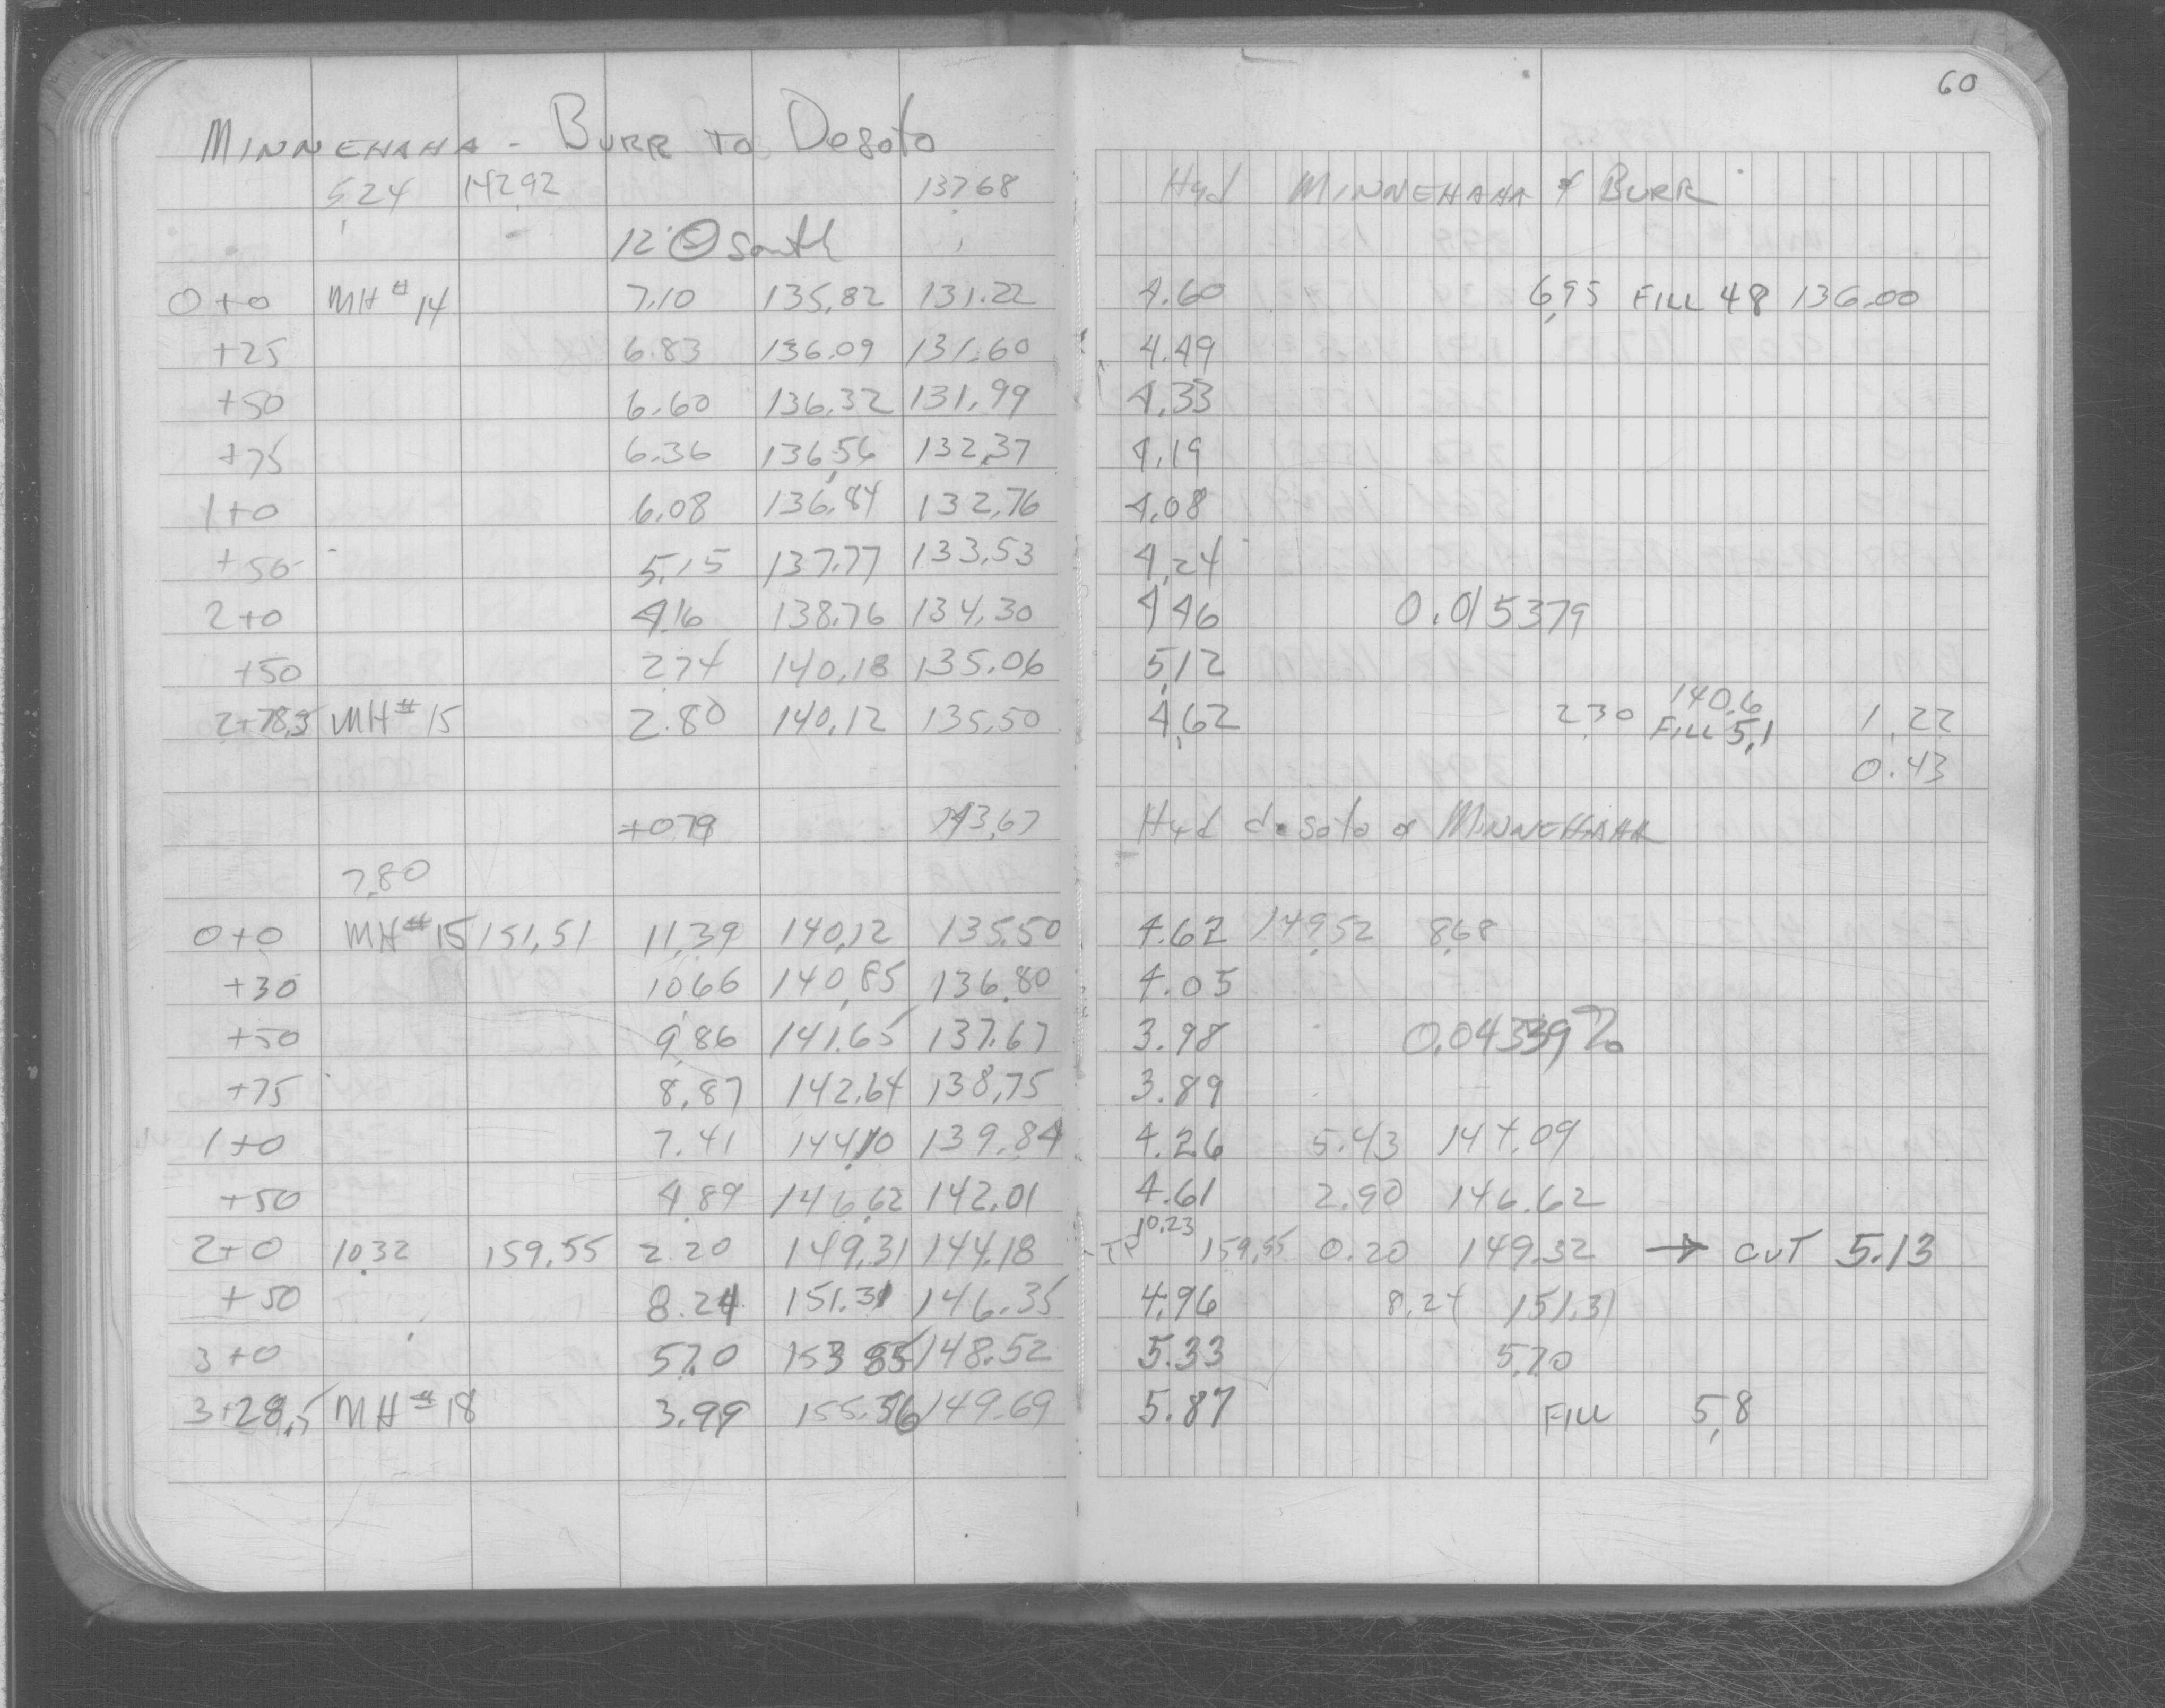 60
MINNEHAHA - BURR TO Desoto
5.24 142.92 137.68 Hyd MINNEHAHA & BURR
12' South
0+0 MH # 14 7.10 135.82 131.22 4.60 6.95 FILL 48 136.00
+25 6.83 136.09 131.60 4.49
+50 6.60 136.32 131.99 4.33
+75 6.36 136.56 132.37 4.19
1+0 6.08 136.84 132.76 4.08
+50 5.15 137.77 133.53 4.24
2+0 4.16 138.76 134.30 4.46 0.015379
+50 2.74 140.18 135.06 5.12
140.6
2+78.5 MH # 15 2.80 140.12 135.50 4.62 2.30 FILL 5.1 1.22
0.43
+0.79 143.67 Hyd desoto & MINNEHAHA
7.80
0+0 MH # 15 151.51 11.39 140.12 135.50 4.62 149.52 8.68
+30 10.66 140.85 136.80 4.05
+50 9.86 141.65 137.67 3.98 0.04339%
+75 8.87 142.64 138.75 3.89
1+0 7.41 144.10 139.84 4.26 5.43 144.09
+50 4.89 146.62 142.01 4.61 2.90 146.62
10.23
2+0 10.32 159.55 2.20 149.31 144.18 TP 159.55 0.20 149.32 → CUT 5.13
+50 8.24 151.31 146.35 4.96 8.24 151.31
3+0 5.70 153.85 148.52 5.33 5.70
3+28.5 MH # 18 3.99 155.56 149.69 5.87 FILL 5.8